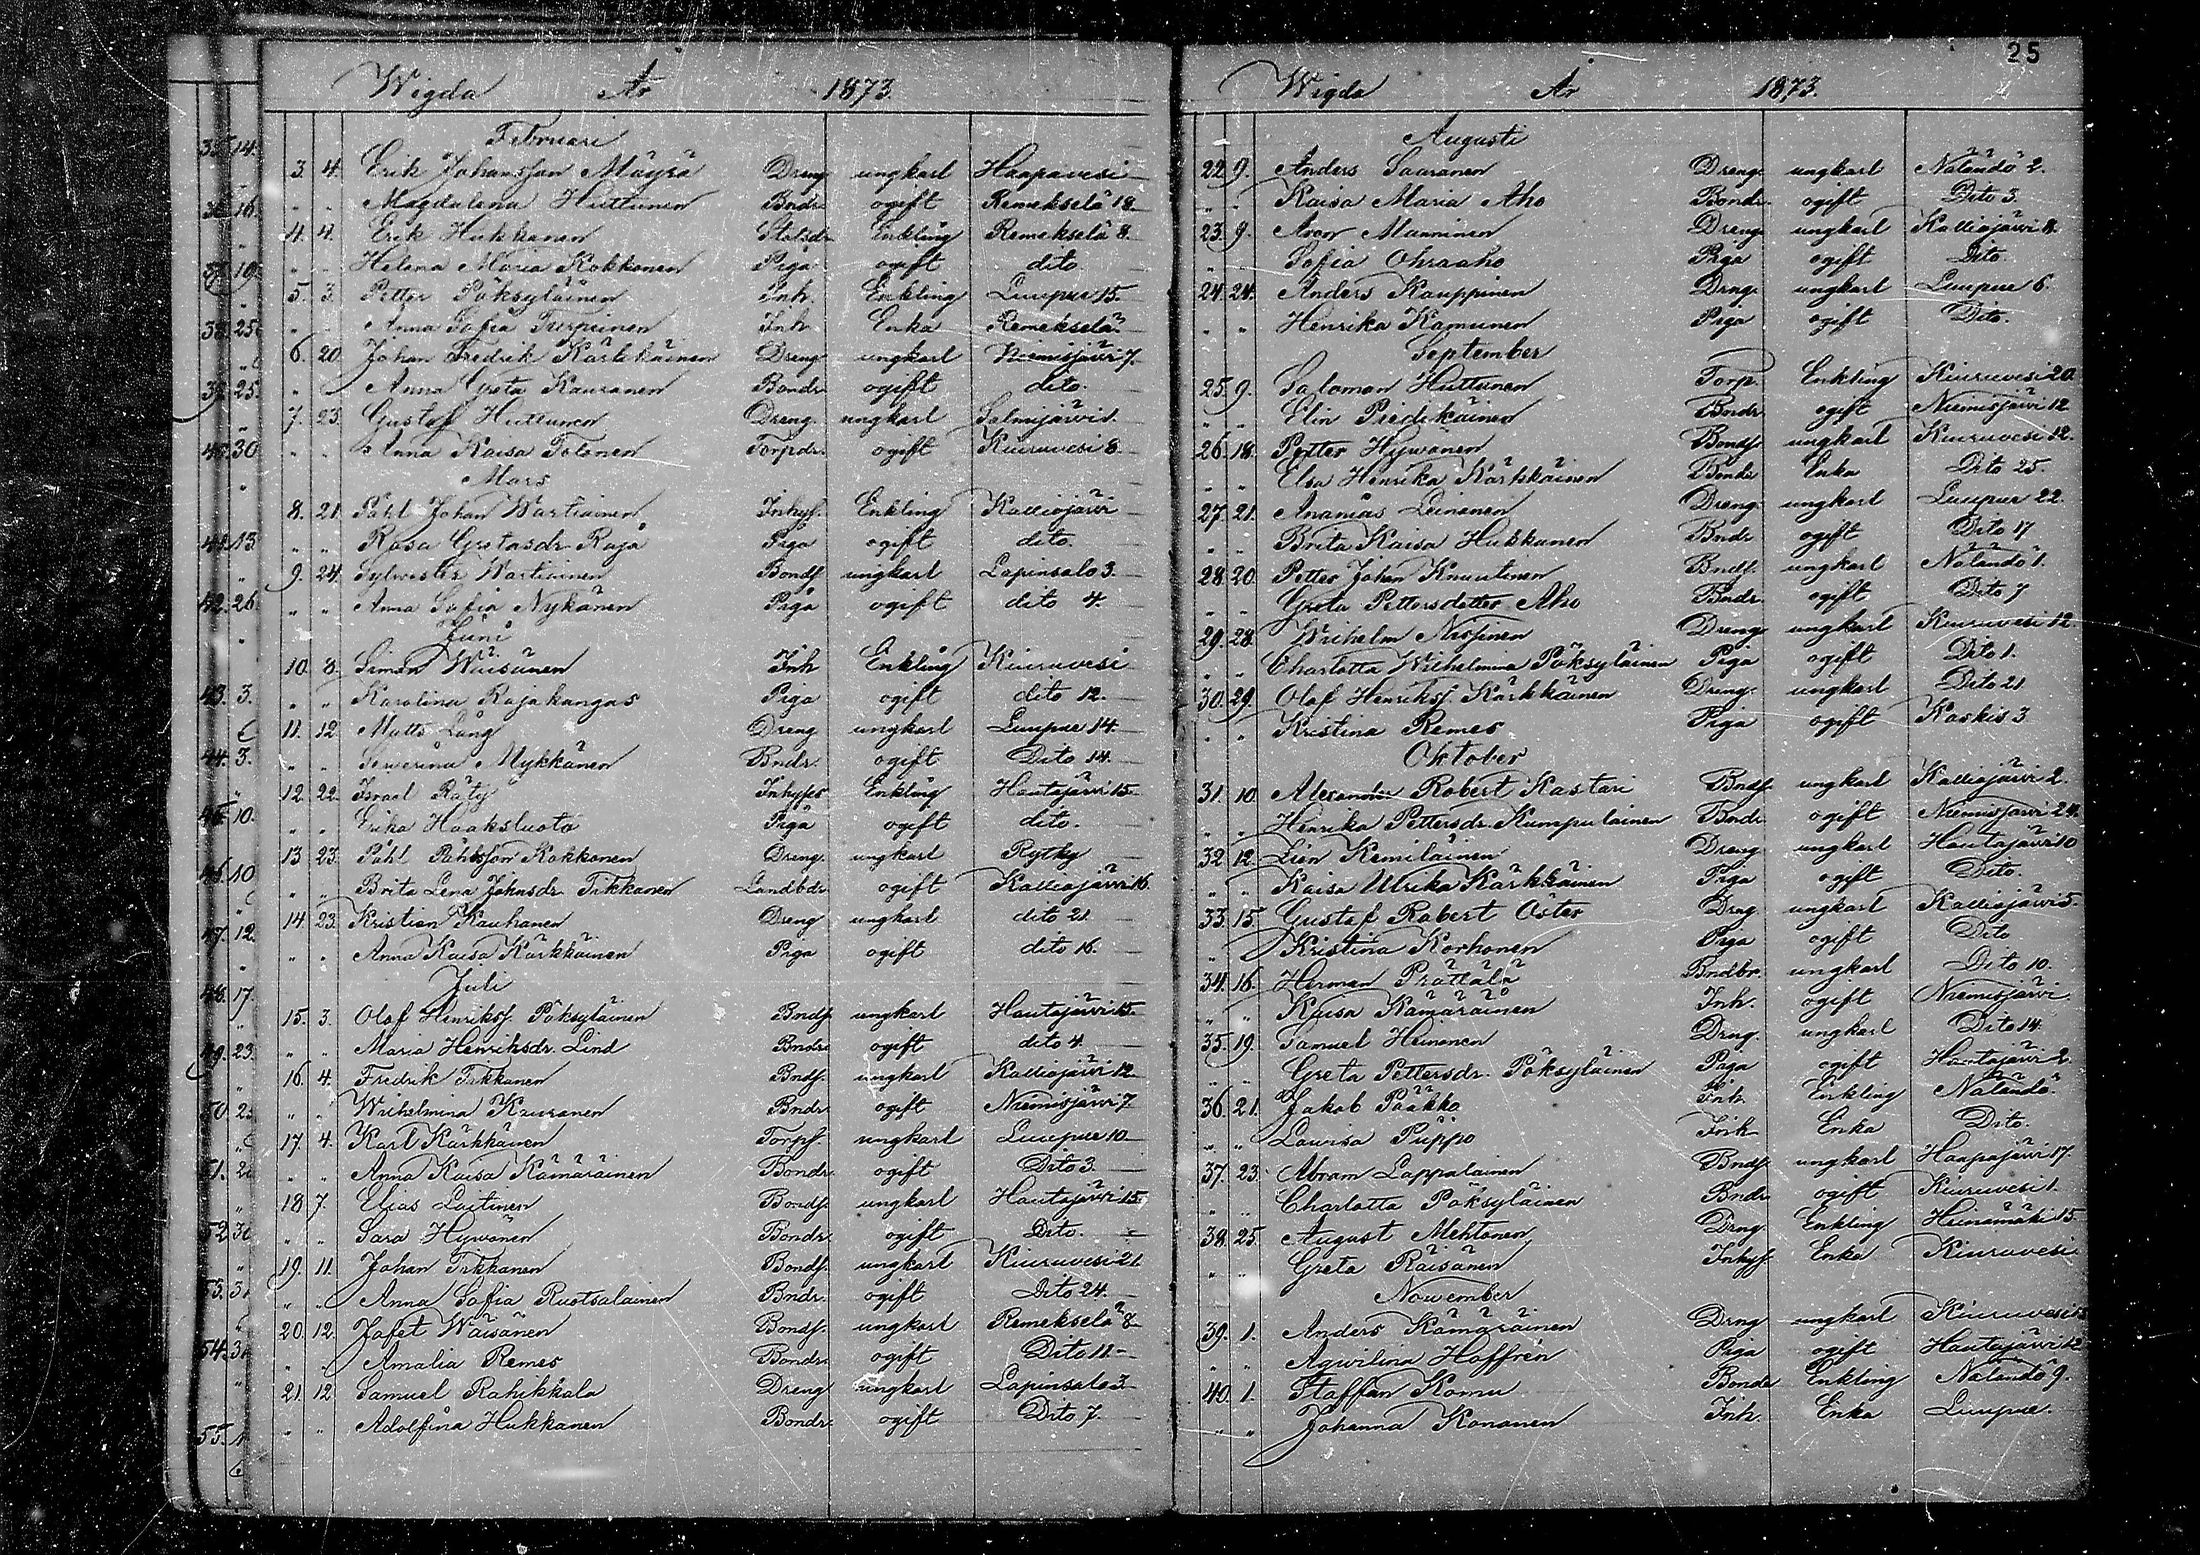 Wigda År 1873.
Februari
3. 4. Erik Johansson Mäyrä Dreng ungkarl Haapavesi
" " Magdalena Huttunen Bndr. ogift Remekselä 18.
4. 4. Erik Hukkanen Enkling Remekselä 8.
" " Helena Maria Kokkonen Piga ogift dito
5. 3. Petter Pöksyläinen Inh. Enkling Luupue 15.
" " Anna Sofia Turpeinen Inh. Enka Remekselä
6. 20. Johan Fredrik Kärkkäinen Dreng ungkarl Niemisjärvi 7.
" " Anna Greta Kauranen Bondr. ogift dito.
7. 23. Gustaf Huttunen Dreng. ungkarl Salmijärvi 1.
" " Anna Kaisa Tolonen Torpdr. ogift Kiuruvesi 8.
Mars
8. 21. Påhl Johan Wartiainen Inhys. Enkling Kalliojärvi
" " Rosa Gretasdr. Raja Piga ogift dito.
9. 24. Sylvester Wartiainen Bonds. ungkarl Lapinsalo 3.
" " Anna Sofia Nykänen Piga ogift dito 4.
Juni
10. 8. Simon Wiisänen Inh Enkling Kiuruvesi
" " Karolina Rajakangas Piga ogift dito 12.
11. 12. Matts Lång Dreng ungkarl Luupue 14.
" " Sewerina Mykkänen Bndr. ogift Dito 14.
12. 22. Israel Räty Inhyses Enkling Hautajärvi 15.
" " Erika Haaksluoto Piga ogift dito.
13. 23. Påhl Påhlsson Kokkonen Dreng. ungkarl Rytky
" " Brita Lena Johnsdr. Tikkanen Landbdr. ogift Kalliojärvi 16.
14. 23. Kristian Kauhanen Dreng ungkarl dito 21.
" " Anna Kaisa Kärkkäinen Piga ogift dito 16.
Juli
15. 3. Olof Henriks. Pöksyläinen Bnds. ungkarl Hautajärvi 15.
" " Maria Henriksdr. Lind Bndr. ogift dito 4.
16. 4. Fredrik Tikkanen Bnds. ungkarl Kalliojärvi 12.
" " Wilhelmina Kauranen Bndr. ogift Niemisjärvi 7
17. 4. Karl Kärkkäinen Torps. ungkarl Luupue 10.
" " Anna Kaisa Kämäräinen Bondr. ogift Dito 3.
18. 7. Elias Laitinen Bonds. ungkarl Hautajärvi 15.
" " Sara Hyvönen Bondr. ogift Dito.
19. 11. Johan Tikkanen Bonds. ungkarl Kiuruvesi 21.
" " Anna Sofia Ruotsalainen Bndr. ogift Dito 24.
20. 12. Jafet Wäisänen Bonds. ungkarl Remekselä 8.
" " Amalia Remes Bondr. ogift Dito 11.
21. 12. Samuel Rahikkala Dreng ungkarl Lapinsalo 3.
" " Adolfina Hukkanen Bondr. ogift Dito 7.
25
Wigda År 1873.
Augusti
22. 9. Anders Saaranen Dreng. ungkarl Näländö 2.
" " Kaisa Maria Aho Bondr. ogift Dito 3.
23. 9. Aron Manninen Dreng ungkarl Kalliojärvi 8.
" " Sofia Ohraaho Piga ogift Dito.
24. 24. Anders Kauppinen Drng. ungkarl Luupue 6.
" " Henrika Kamunen Piga ogift Dito.
September
25. 9. Salomon Huttunen Torp. Enkling Kiuruvesi 20.
" " Elin Piedikäinen Bndr. ogift Niemisjärvi 12.
26. 18. Petter Hyvönen Bonds. ungkarl Kiuruvesi 12.
" " Elsa Henrika Kärkkäinen Bonde Enka Dito 25.
27. 21. Ananias Leinonen Dreng ungkarl Luupue 22.
" " Brita Kaisa Hukkanen Bndr ogift Dito 17
28. 20. Petter Johan Knuutinen Bnds. ungkarl Näländö 1.
" " Greta Pettersdotter Aho Bndr. ogift Dito 7
29. 28. Wilhelm Nissinen Dreng ungkarl Kiuruvesi 12.
" " Charlotta Wilhelmina Pöksyläinen Piga ogift Dito 1.
30. 29. Olof Henriks. Kärkkäinen Dreng. ungkarl Dito 21
" " Kristina Remes Piga ogift Koskis 3.
Oktober
31. 10. Alexander Robert Kastari Bnds. ungkarl Kalliojärvi 2.
" " Henrika Pettersdr. Kumpulainen Bndr. ogift Niemisjärvi 24.
32. 12. Lien Kemiläinen Dreng ungkarl Hautajärvi 10
" " Kaisa Ulrika Kärkkäinen Piga ogift Dito.
33. 15. Gustaf Robert Öster Drng. ungkarl Kalliojärvi 5.
" Kristina Korhonen Piga ogift Dito
34. 16. Herman Prättälä Bndbr. ungkarl Dito 10.
" " Kaisa Kämäräinen Inh. ogift Niemisjärvi
35. 19. Samuel Heinonen Drng. ungkarl Dito 14.
" " Greta Pettersdr. Pöksyläinen Piga ogift Hautajärvi 2.
36. 21. Jakob Pääkkö Inh. Enkling Näländö.
" " Lowisa Puppo Inh. Enka Dito.
37. 23. Abram Lappalainen Bnds. ungkarl Haapajärvi 17.
" " Charlotta Pöksyläinen Bndr. ogift Kiuruvesi 1.
38. 25. August Mehtonen Drng. Enkling Heinämäki 15.
" " Greta Räisänen Inhys. Enka Kiuruvesi
November
39. 1. Anders Kämäräinen Drng ungkarl Kiuruvesi
" " Aqwilina Hoffrén Piga ogift Hautajärvi 12
40. 1. Staffan Komu Bonde Enkling Näländö 9.
" " Johanna Kananen Inh. Enka Luupue.